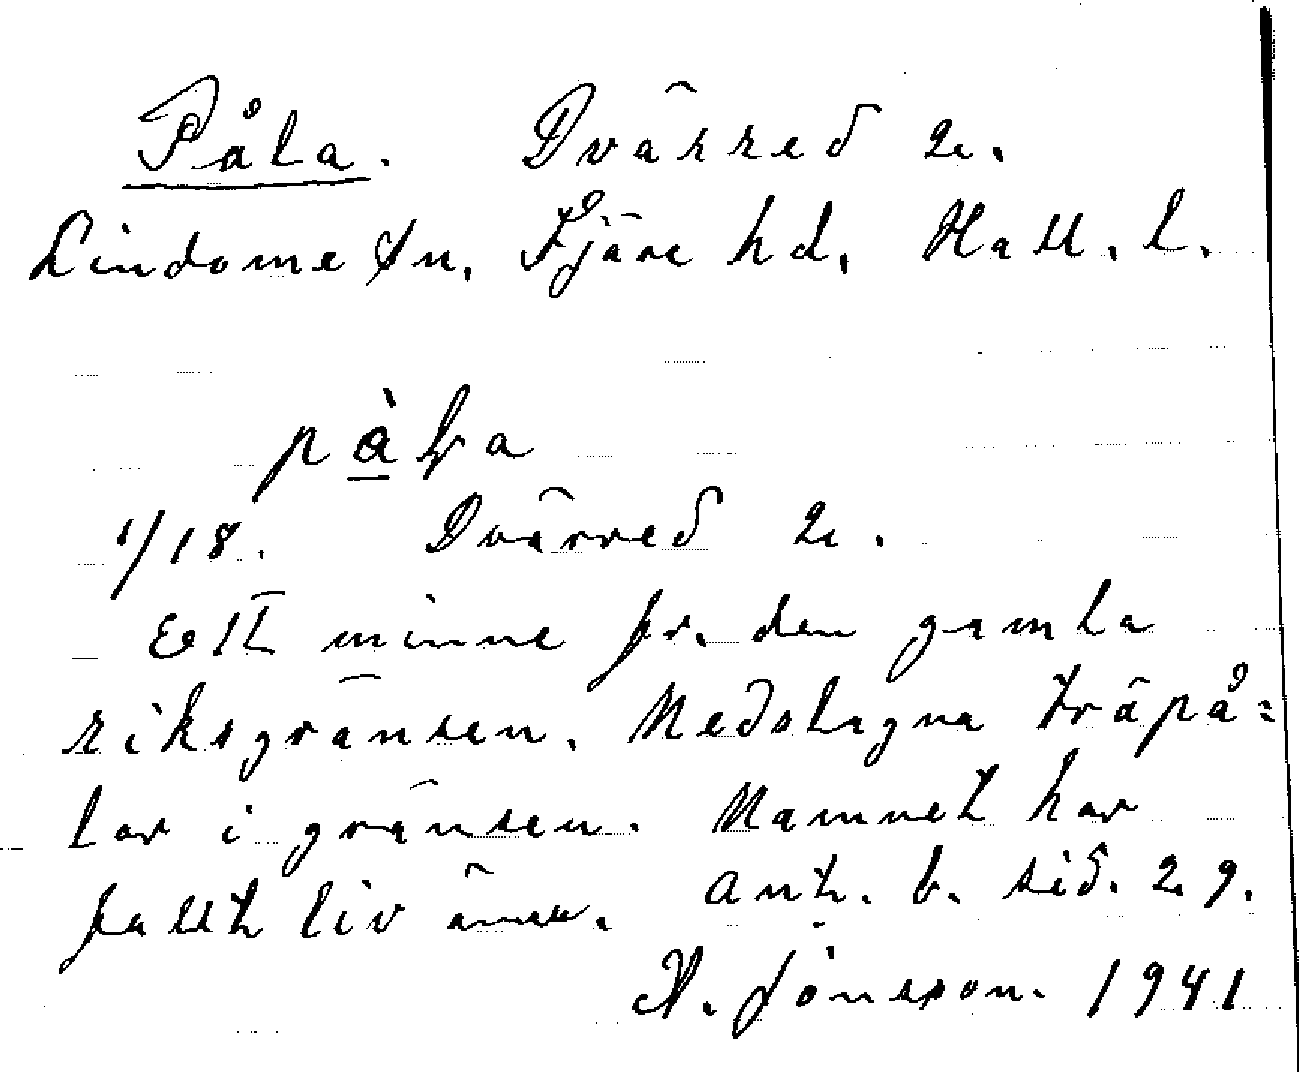 Påla. Dvärred 2.
Lindome sn. Fjäre hd. Hall. l.
pàⱡa
1/18. Dvärred 2.
Ett minne fr. den gamla
riksgränsen. Nedslagna träpå=
lar i gränsen. Namnet har
fullt liv ännu. Ant. b. sid. 29.
N. Jönsson. 1941